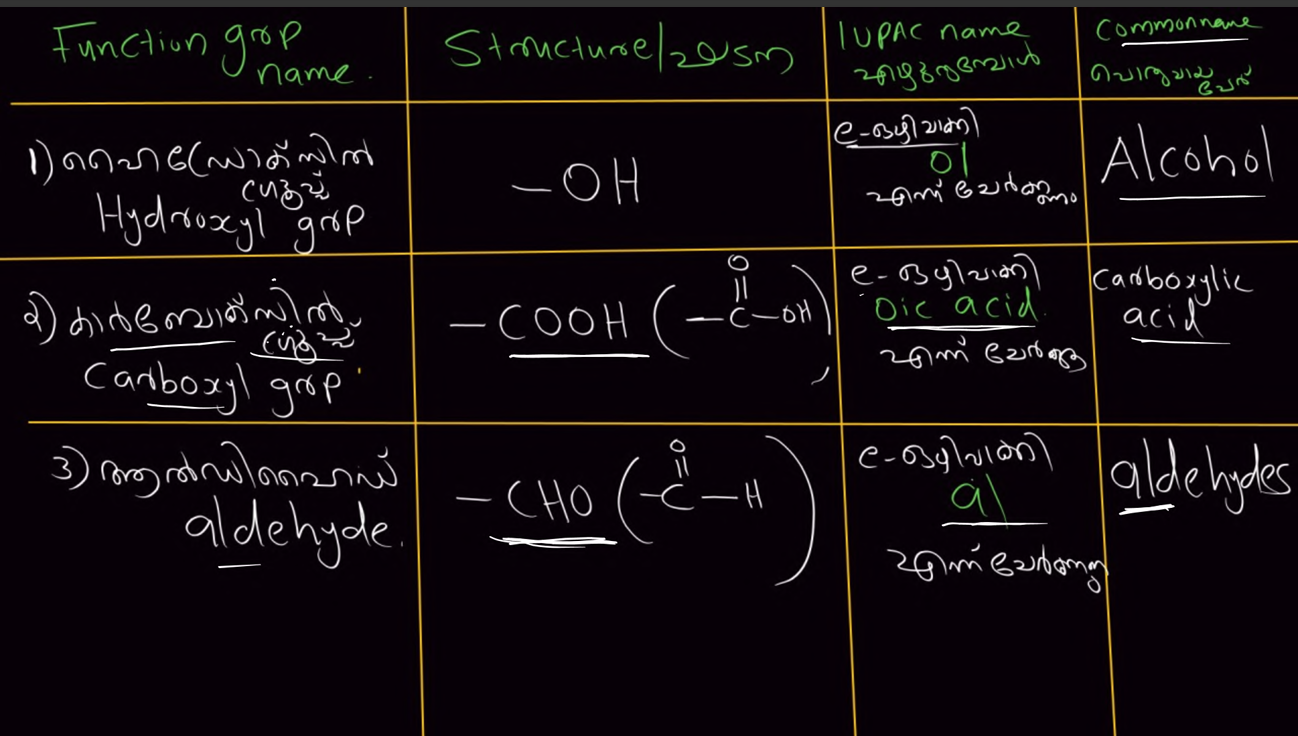 Function grp
name.
Structure/ഘടന
IUPAC name
എഴുതുമ്പോൾ
Common name
പൊതുവായ
പേര്
1) ഹൈഡ്രോക്സിൽ
ഗ്രൂപ്പ്
Hydroxyl grp
-OH
e-ഒഴിവാക്കി
ol
എന്ന് ചേർക്കണം
Alcohol
2) കാർബോക്സിൽ
ഗ്രൂപ്പ്
Carboxyl grp
-COOH ( O
-C-OH )
e-ഒഴിവാക്കി
oic acid
എന്ന് ചേർക്കുക
Carboxylic
acid
3) ആൽഡിഹൈഡ്
aldehyde.
-CHO ( O
-C-H )
e-ഒഴിവാക്കി
al
എന്ന് ചേർക്കുന്നു
aldehydes